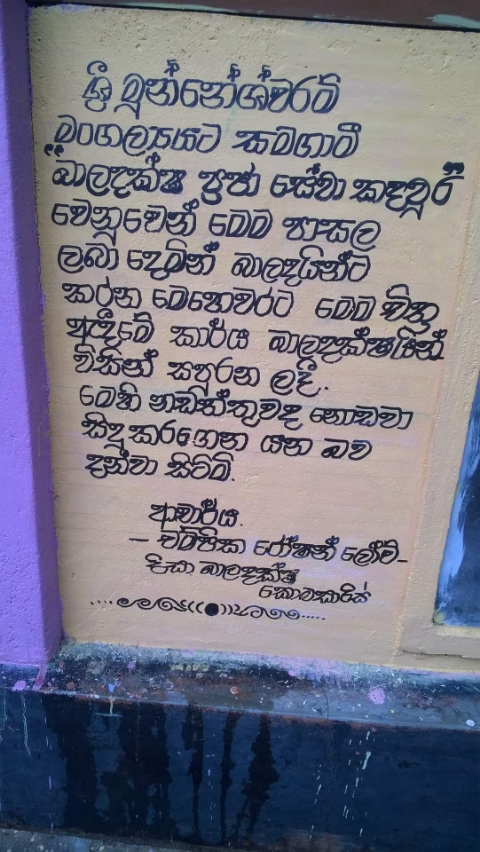 ශ්‍රී මුන්නේශ්වරම්
මංගල්‍යයට සමගාමී
"බාලදක්ෂ ප්‍රජා සේවා කඳවුර"
වෙනුවෙන් මෙම පාසල
ලබා දෙමින් බාලදයින්ට
කරන මෙහෙවරට මෙම චිත්‍ර
ඇඳීමේ කාර්ය බාලදක්ෂයින්
විසින් සපුරන ලදී.
මෙහි නඩත්තුවද නොඩවා
සිදුකරගෙන යන බව
දන්වා සිටිමි.
ආචාර්ය.
- චම්පික රෝෂන් ලෝව් -
දිසා බාලදක්ෂ
කොමසාරිස්